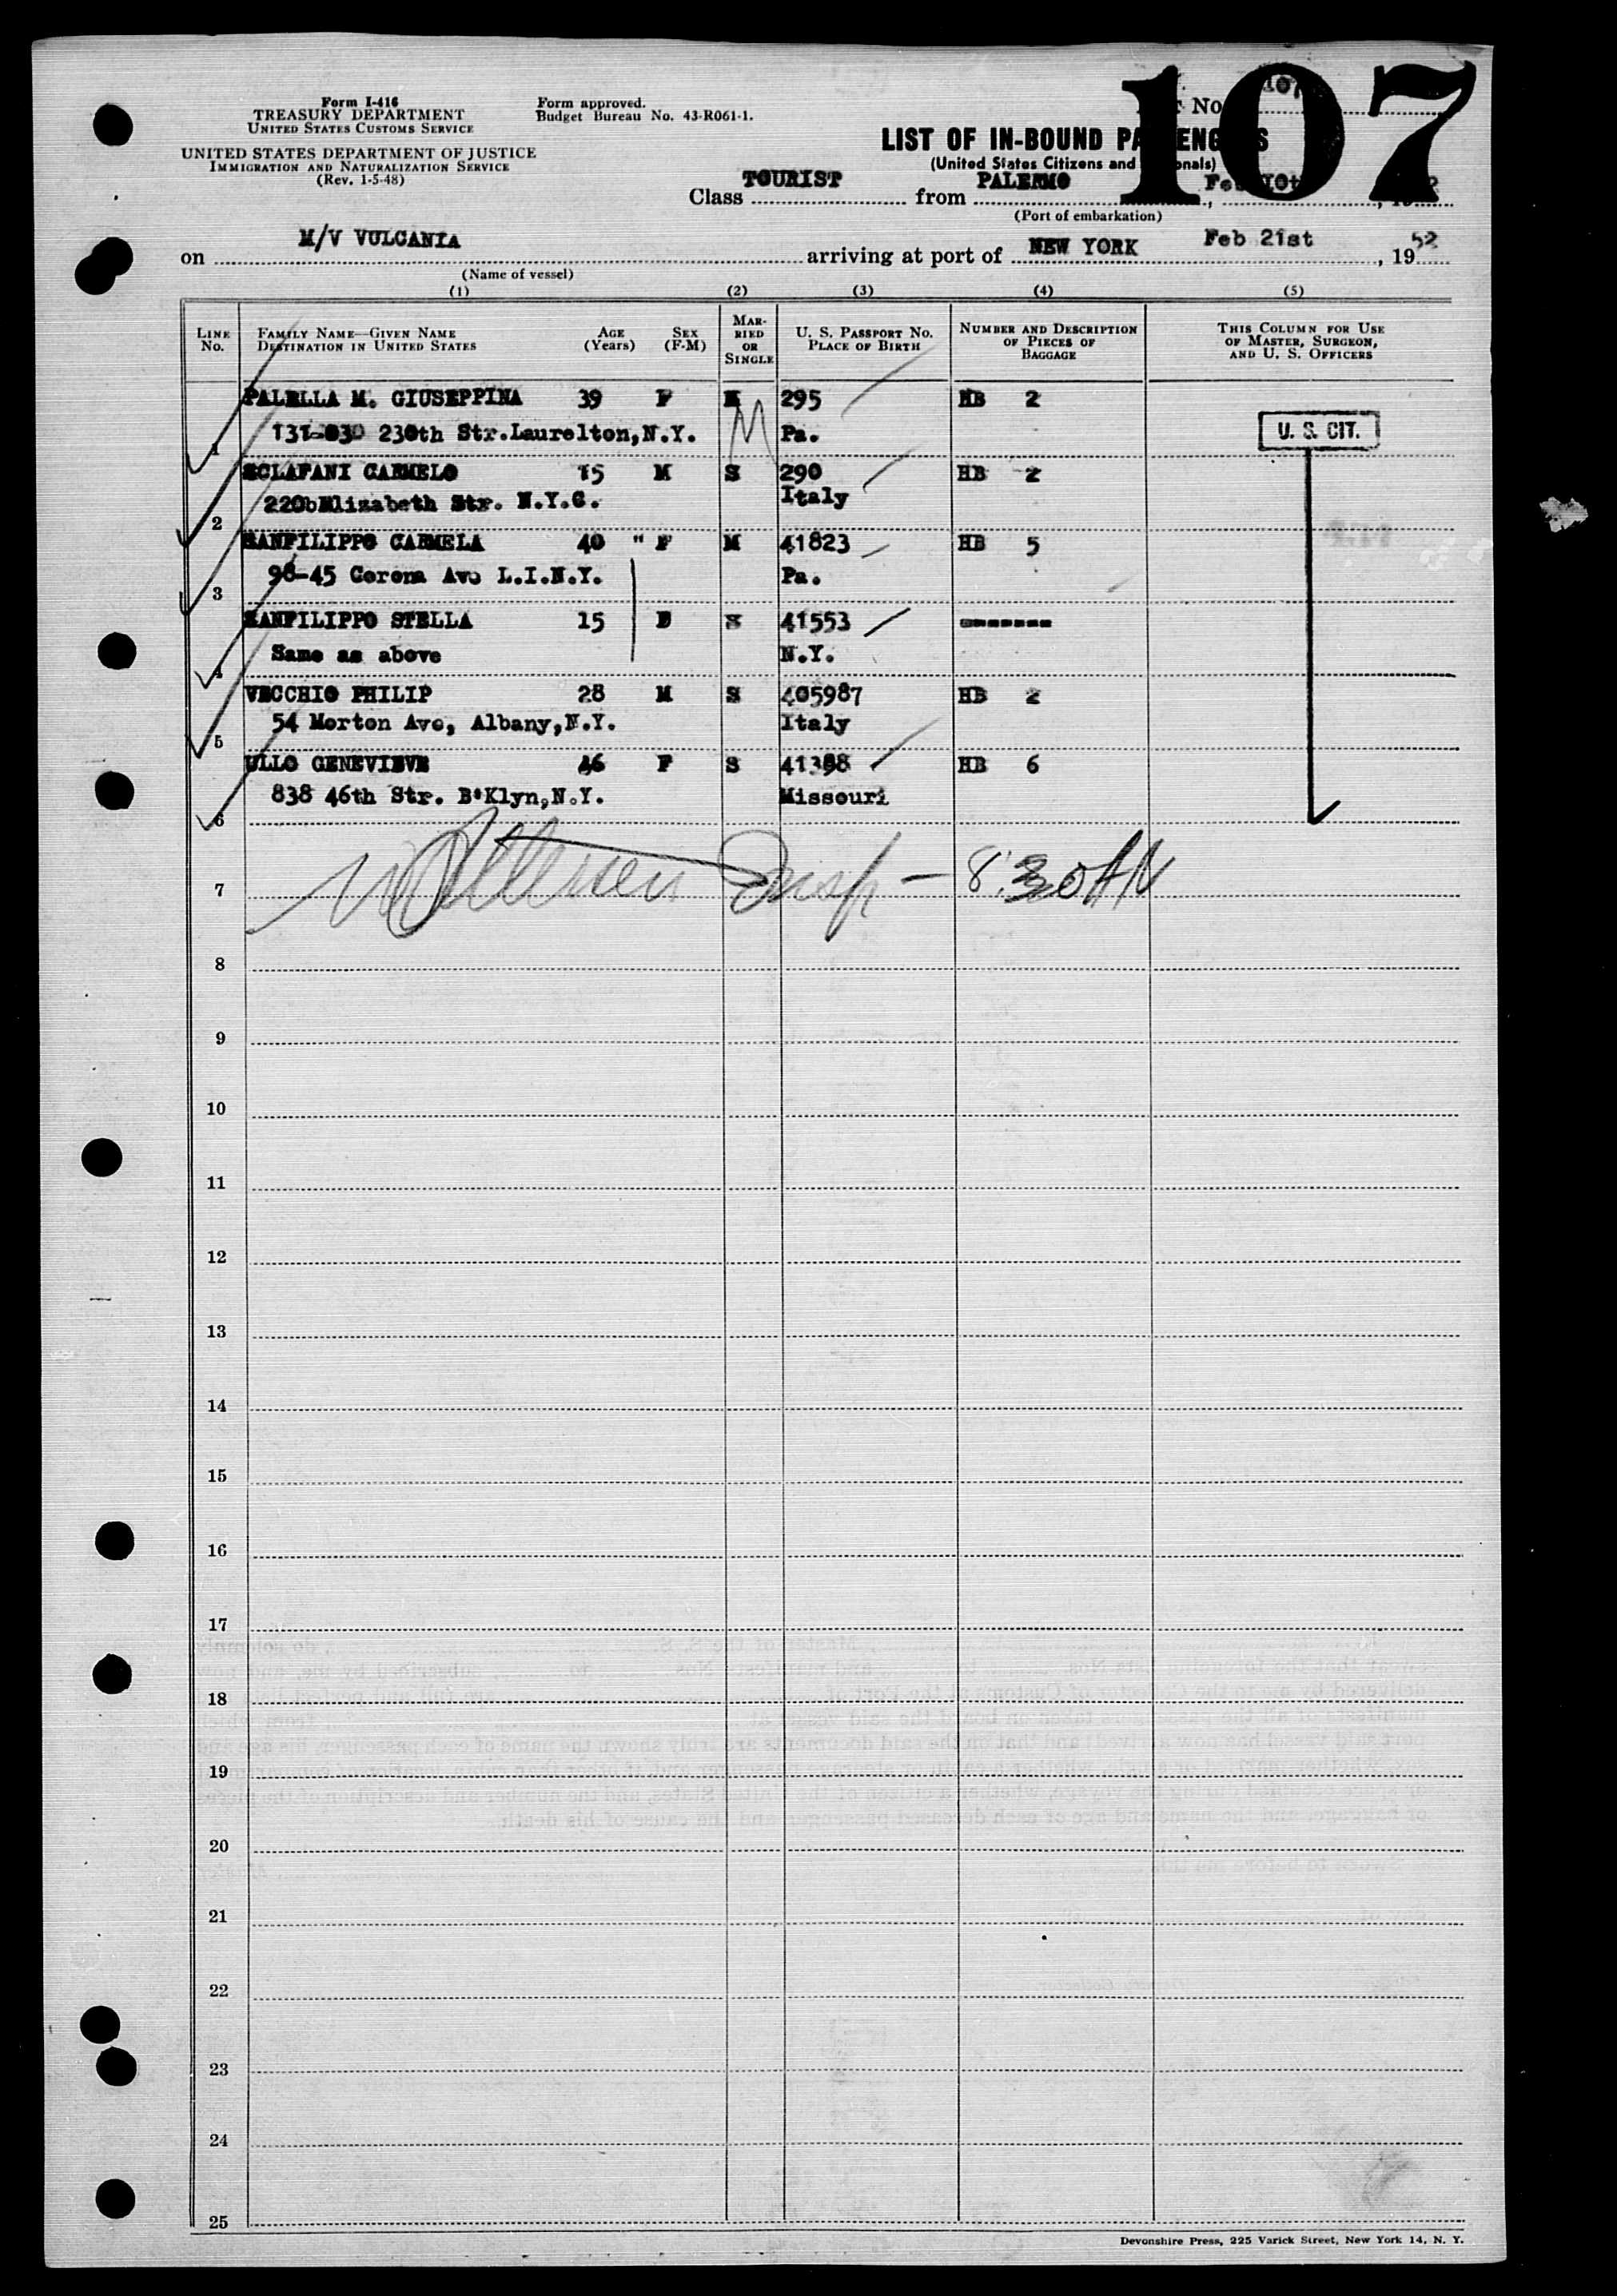 Form I-416
TREASURY DEPARTMENT
UNITED STATES CUSTOMS SERVICE
UNITED STATES DEPARTMENT OF JUSTICE
IMMIGRATION AND NATURALIZATION SERVICE
(Rev. 1-5-48)
Form approved.
Budget Bureau No. 43-R061-1.
107
No. 107
LIST OF IN-BOUND
(United States Citizens and
Class TOURIST from PALERMO
(Port of embarkation)
on M/V VULCANIA arriving at port of NEW YORK Feb 21st, 1952
(Name of vessel)
(1) (2) (3) (4) (5)
LINE No. FAMILY NAME—GIVEN NAME DESTINATION IN UNITED STATES AGE (Years) SEX (F-M) MARRIED OR SINGLE U. S. PASSPORT NO. PLACE OF BIRTH NUMBER AND DESCRIPTION OF PIECES OF BAGGAGE THIS COLUMN FOR USE OF MASTER, SURGEON, AND U. S. OFFICERS
PALELLA M. GIUSEPPINA 39 F M 295 HB 2
1 230th Str.Laurelton,N.Y. Pa. U. S. CIT.
SCLAFANI CARMELO 15 M S 290 HB 2
2 Elizabeth Str. N.Y.C. Italy
SANFILIPPO CARMELA 40 " F M 41823 HB 5
3 98-45 Corona Ave L.I.N.Y. Pa.
SANFILIPPO STELLA 15 41553 -------
4 Same as above N.Y.
VECCHIO PHILIP 28 M S 405987 HB 2
5 54 Morton Ave, Albany,N.Y. Italy
ULLO GENEVIEVE 46 F S HB 6
6 838 46th Str. B'Klyn,N.Y. Missouri
7 Insp - 8:30 AM
8
9
10
11
12
13
14
15
16
17
18
19
20
21
22
23
24
25
Devonshire Press, 225 Varick Street, New York 14, N. Y.